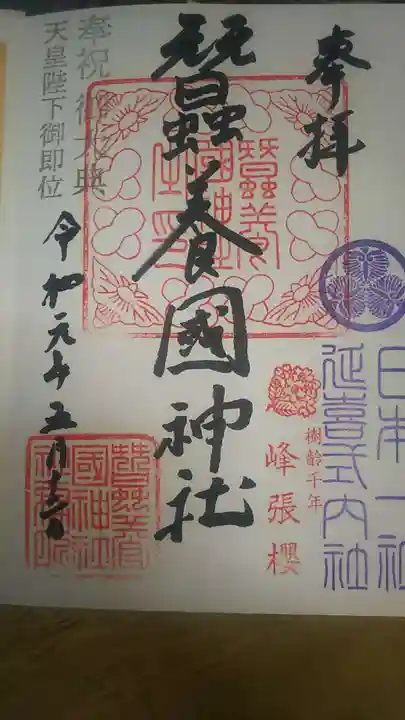 奉拝
日本一社
延喜式内社
樹齢千年
峰張櫻
蠶養國神社
奉祝 御大典
天皇陛下御即位
令和元年五月